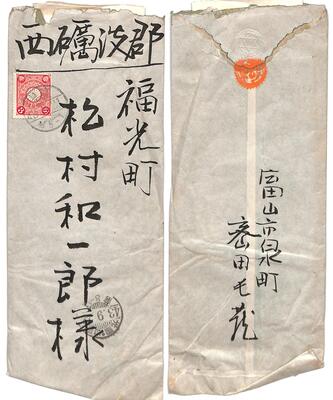 西礪波郡
福光町
松村和一郎様
富山市泉町
密田